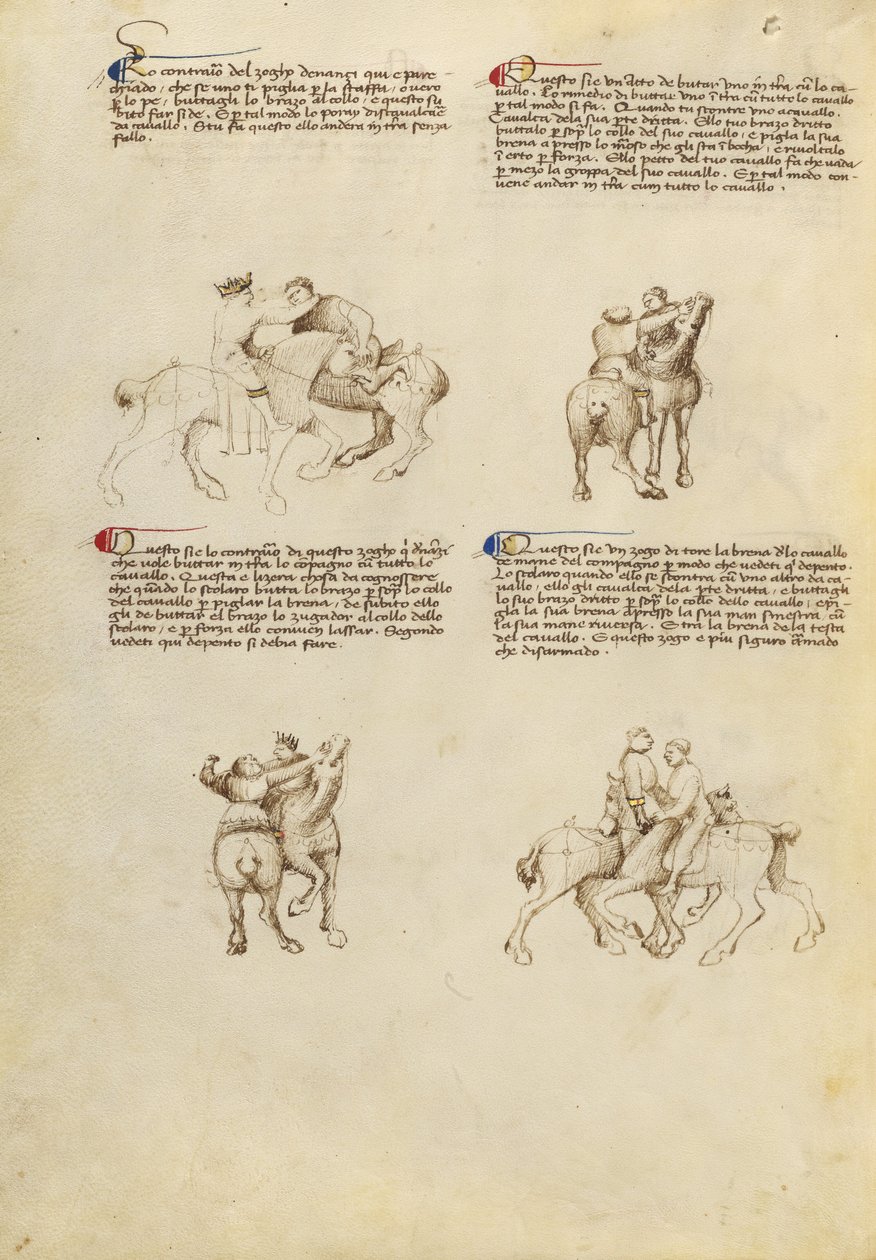 Lo contrario del zogho denanci qui e pare-
chiado, che se uno ti piglia p̱ la staffa, overo
p̱ lo pe, buttagli lo brazo al collo, e questo su-
bito far si de. E p̱ tal modo lo poray discavalcare
da cavallo. Stu fa questo ello andera in t̄ra senza
fallo.
Questo sie un'atto de butar uno in t̄ra cū lo ca-
vallo. Lo rimedio di buttar uno ī t̄ra cū tutto lo cavallo
p̱ tal modo si fa. Quando tu scontre uno a cavallo.
Cavalca dela sua p̱te dritta. Ello tuo brazo dritto
buttalo p̱ sop̱ lo collo del suo cavallo, e pigla la sua
brena apresso lo m̄oso che gli sta ī bocha, e rivoltalo
ī erto p̱ forza. Ello petto del tuo cavallo fa che vada
p̱ mezo la groppa del suo cavallo. E p̱ tal modo con-
vene andar in t̄ra cum tutto lo cavallo.
Questo sie lo contrario di questo zogho q̄ dinanzi
che vole buttar in t̄ra lo cōpagno cū tutto lo
cavallo. Questa e lizera chosa da cognossere
che q̄ndo lo scolaro butta lo brazo p̱ sop̱ lo collo
del cavallo p̱ piglar la brena, de subito ello
gli de buttar el brazo lo zugador al collo dello
scolaro, e p̱ forza ello convien lassar. Segondo
vedeti qui depento si debia fare.
Questo sie un zogo di tore la brena d̄lo cavallo
de mane del compagno p̱ modo che vedeti q̄ depento.
Lo scolaro quando ello se scontra cū uno altro da ca-
vallo, ello gli cavalca dela p̱te dritta, e buttagli
lo suo brazo dritto p̱ sop̱ lo collo dello cavallo, e pi-
gla la sua brena apresso la sua man sinestra, cū
la sua mane riversa. E tra la brena dela testa
del cavallo. E questo zogo e piu siguro armado
che disarmado.